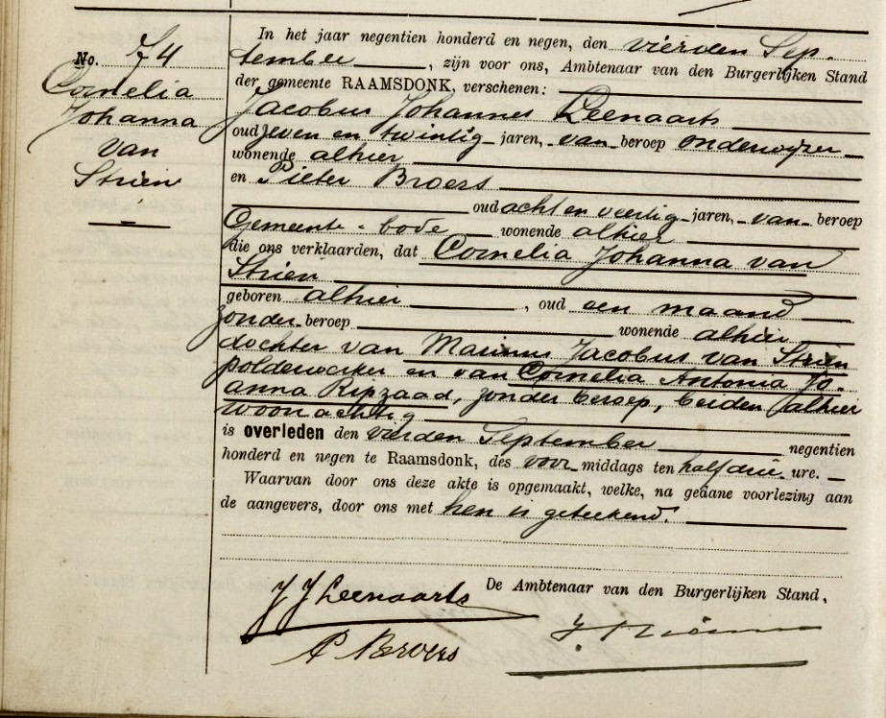 No. 74
Cornelia
Johanna
van
Strien
In het jaar negentien honderd en negen, den vierden Sep-
tember, zijn voor ons, Ambtenaar van den Burgerlijken Stand
der gemeente RAAMSDONK, verschenen:
Jacobus Johannes Leenaarts
oud zeven en twintig jaren, van beroep onderwijzer
wonende alhier
en Pieter Broers
oud acht en veertig jaren, van beroep
Gemeente-bode wonende alhier
die ons verklaarden, dat Cornelia Johanna van
Strien
geboren alhier, oud een maand
zonder beroep wonende alhier
dochter van Marinus Jacobus van Strien
polderwerker en van Cornelia Antonia Jo-
anna Ripzaad, zonder beroep, beiden alhier
woonachtig
is overleden den vierden September negentien
honderd en negen te Raamsdonk, des voor middags ten half drie ure.
Waarvan door ons deze akte is opgemaakt, welke, na gedane voorlezing aan
de aangevers, door ons met hen is geteekend.
De Ambtenaar van den Burgerlijken Stand,
J J Leenaarts
P Broers